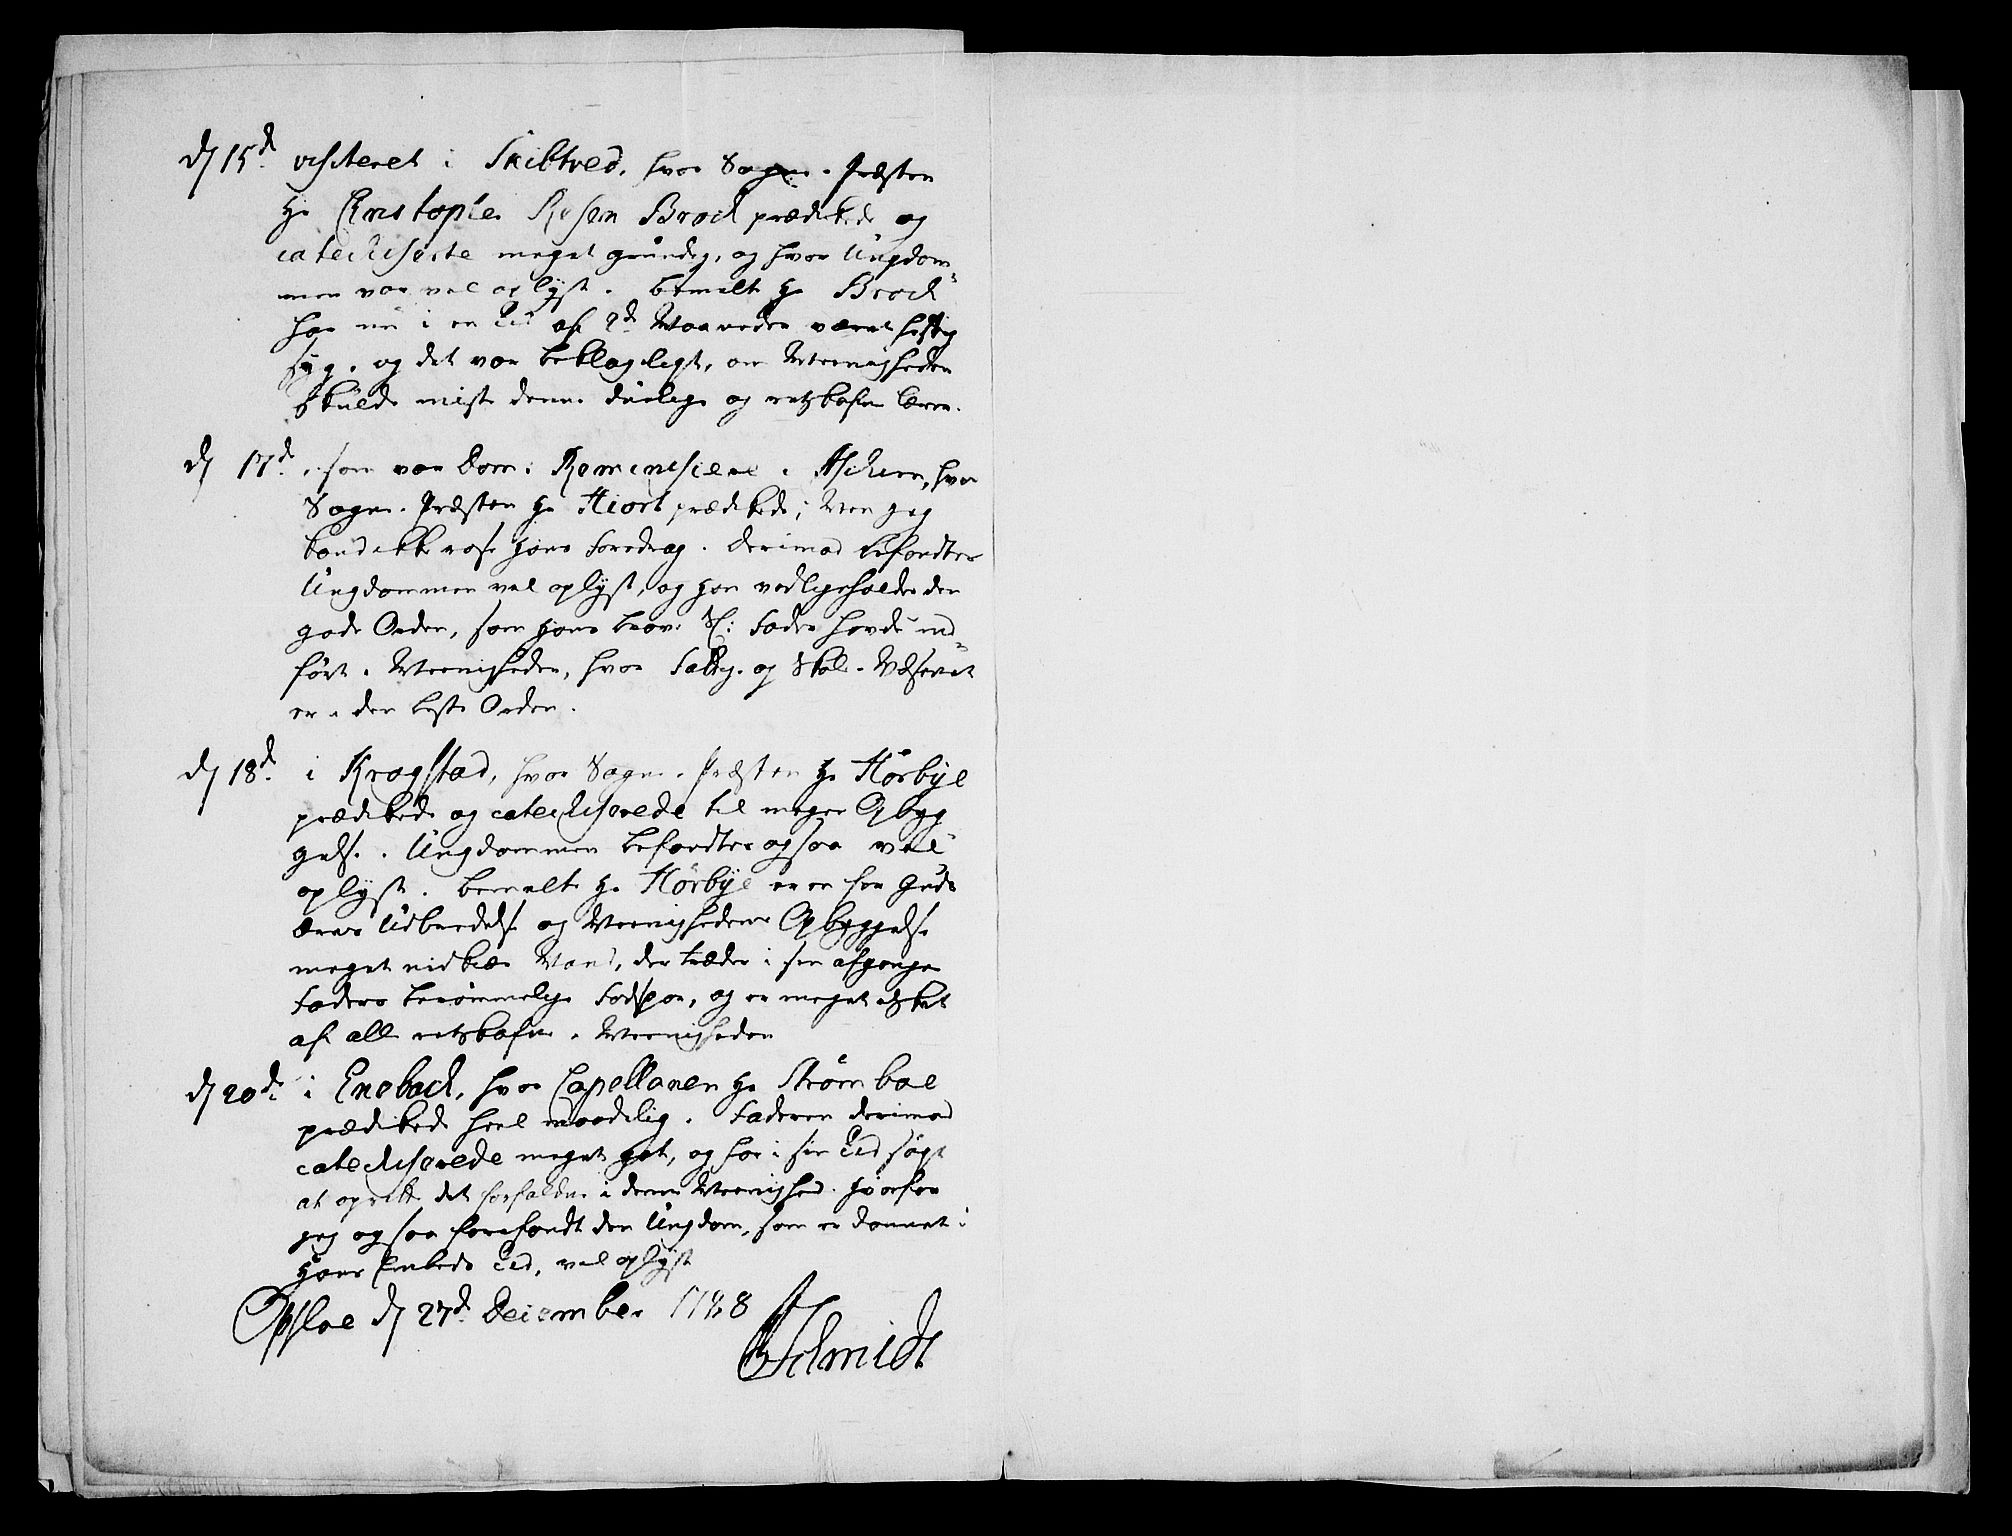 d 15d visiteret i Skibtved, hvor Sogne-Præsten
Hr Christopher Rosen Brock prædikede og
catechiserte meget grundig, og hvor Ungdom-
men var vel oplyst. bemelte Hr Brock
har nu i en Tid af 2de Maaneder været heftig
syg, og det var beklageligt, om Meenigheden
skulde miste denne duelige og retskafne Lærer.
d 17d, som var Dom: Reminiscere i Aschim, hvor
Sogne-Præsten Hr Hiort prædikede; Men jeg
kand ikke rose hans Foredrag. Derimod befandtes
Ungdommen vel oplyst, og han vedligeholder den
gode Orden, som hans Sl: Fader havde ind-
ført i Meenigheden, hvor Fattig- og Skole-Væsenet
er i den beste Orden.
d 18d i Kragstad, hvor Sogne-Præsten Hr Hørbye
prædikede og catechiserede til megen Opbyg
gelse. Ungdommen befandtes ogsaa vel
oplyst. bemelte Hr Hørbye er en for Guds
Æres Udbredelse og Meenighedens Opbyggelse
meget nidkiær Mand, der træder i sin afgangne
Faders berømmelige Fodspor, og er meget elsket
af alle retskafne i Meenigheden
d 20d i Enebach, hvor Capellanen Hr Strøm boe
prædikede heel maadelig. Faderen derimod
catechiserede meget got, og har i sin Tid søgt
at oprette det forfaldne i denne Meenighed. hvorfor
jeg ogsaa forefandt den Ungdom, som er dannet i
Hans Embeds Tid, vel oplyst
Opsloe d 27d December 1788
Schmidt